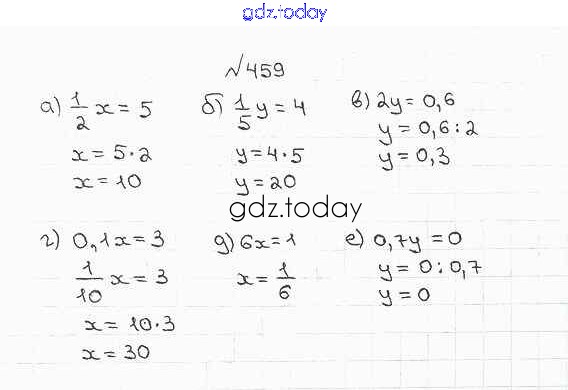 gdz.today
№459
а) 1/2 x = 5
x = 5·2
x = 10
б) 1/5 y = 4
y = 4·5
y = 20
в) 2y = 0,6
y = 0,6 : 2
y = 0,3
gdz.today
г) 0,1x = 3
1/10 x = 3
x = 10·3
x = 30
д) 6x = 1
x = 1/6
е) 0,7y = 0
y = 0 : 0,7
y = 0